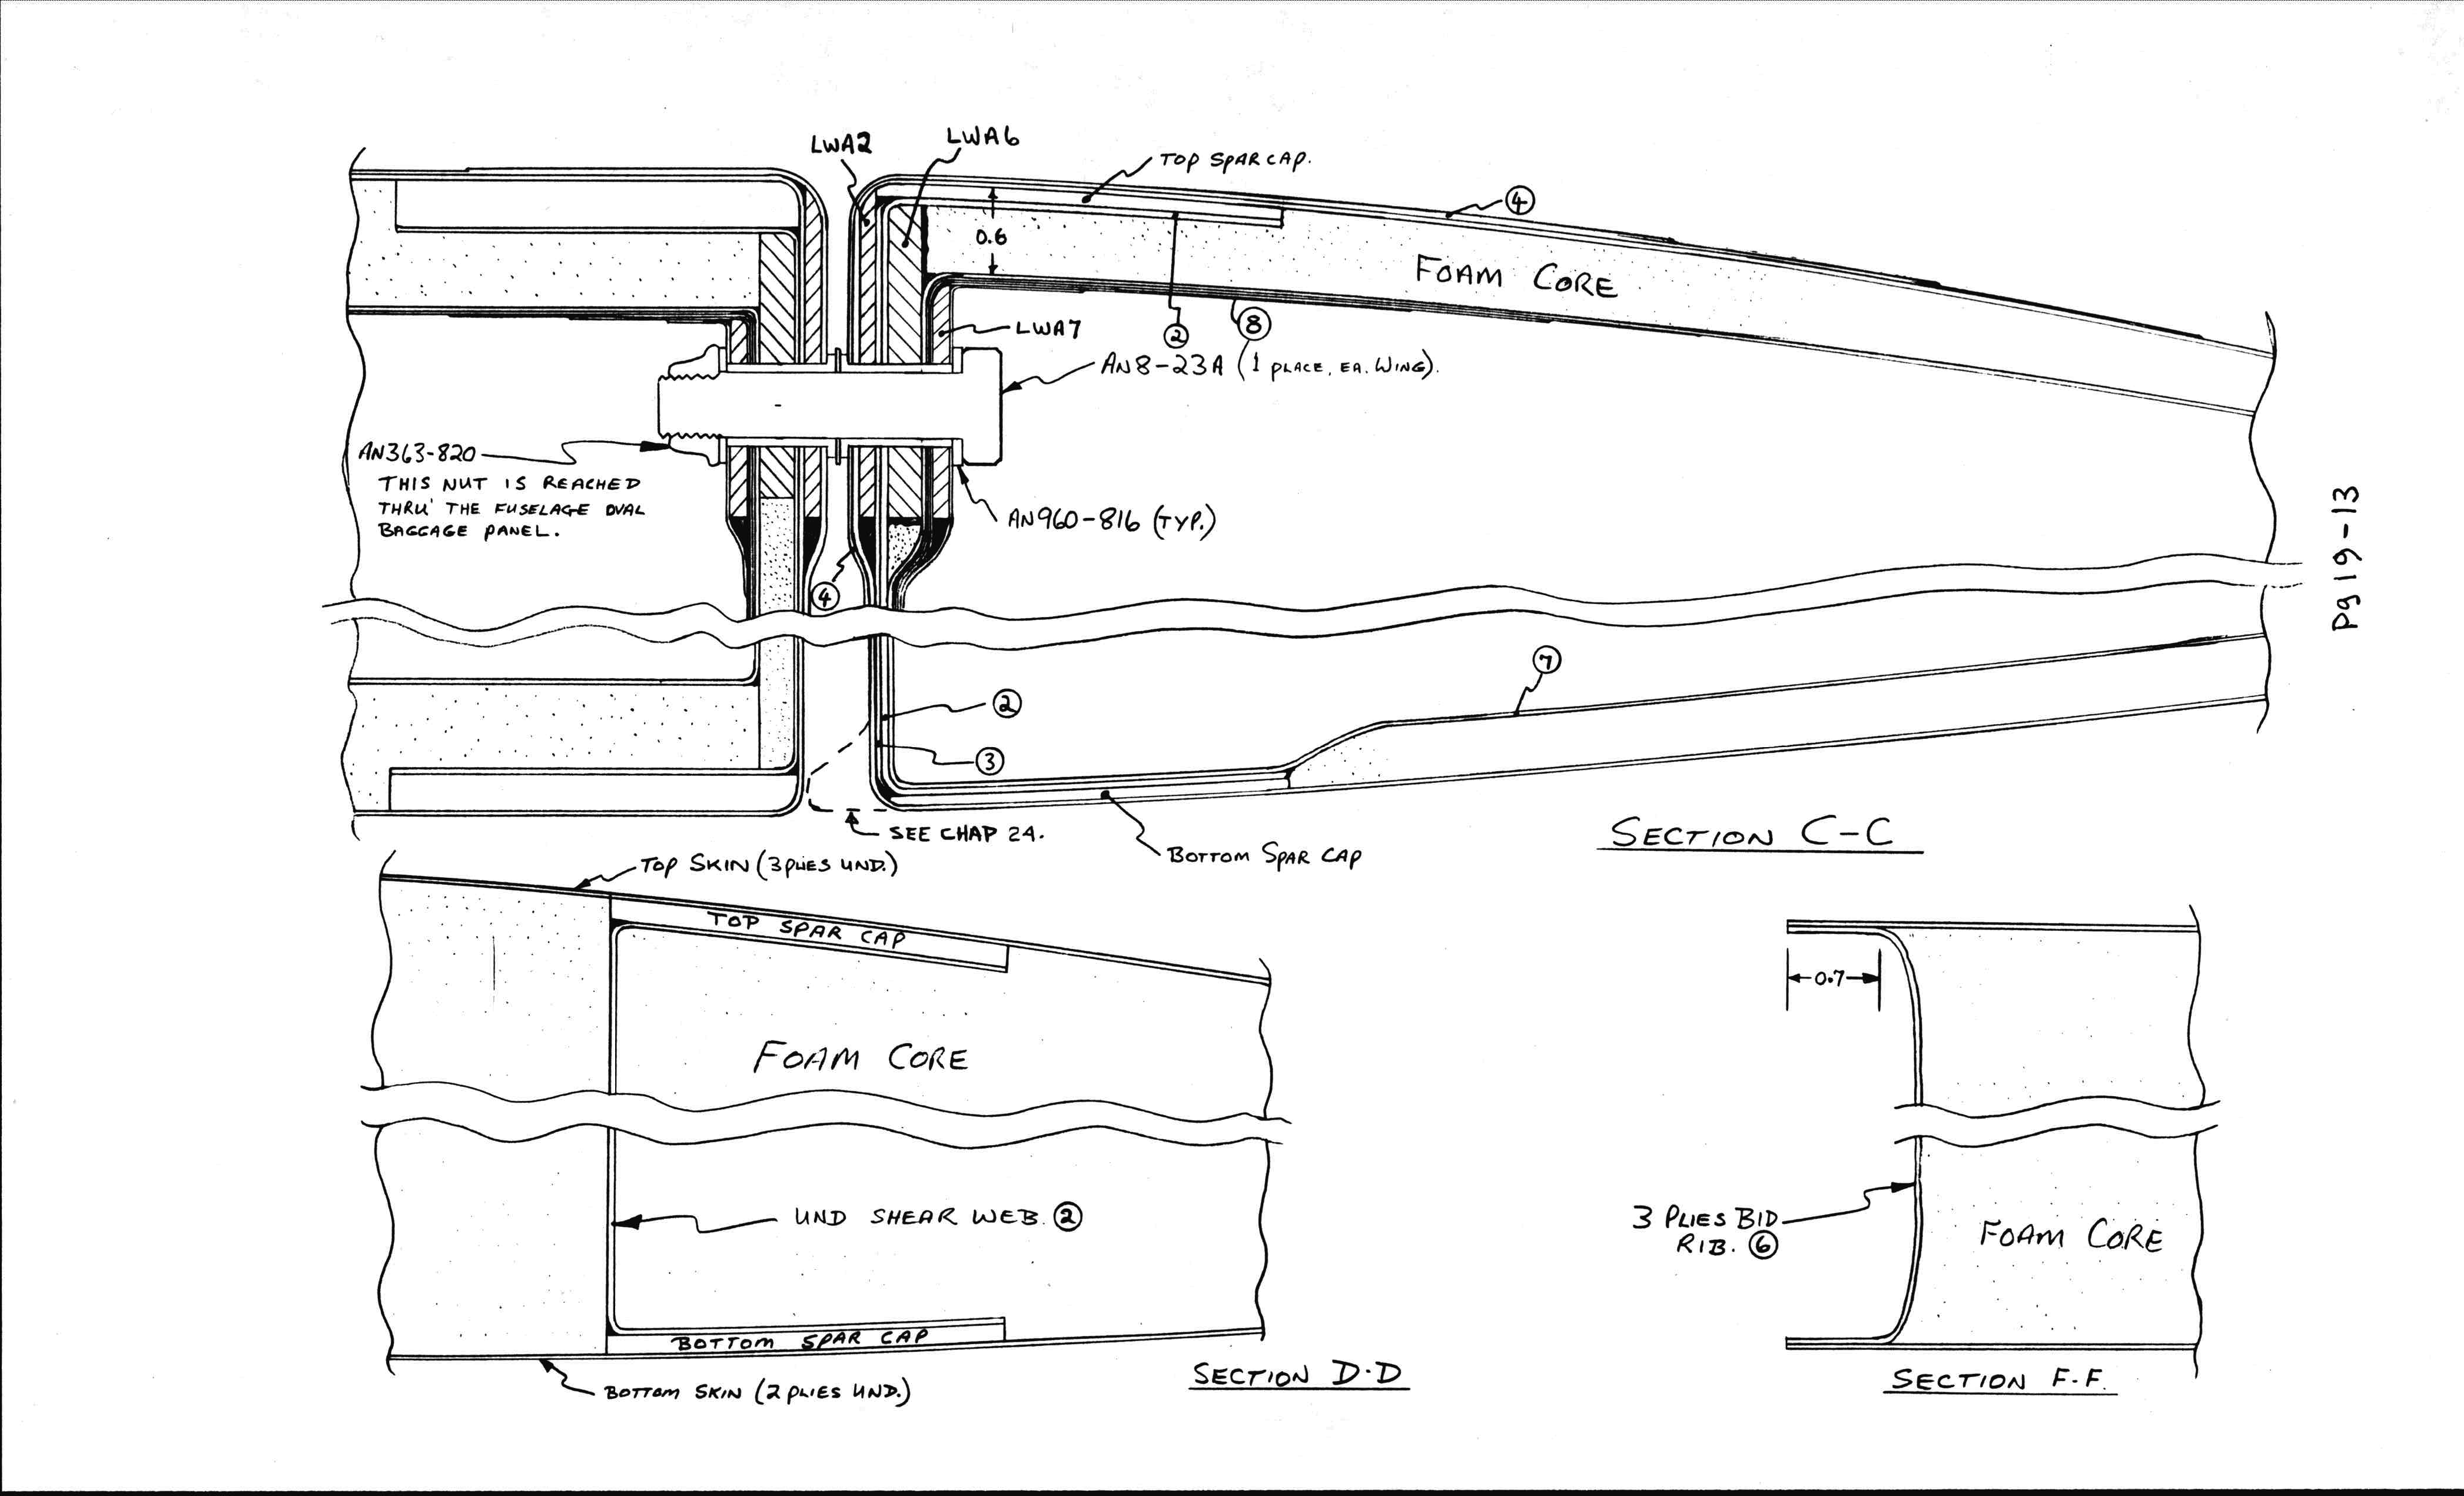 LWA2
LWA6
TOP SPAR CAP.
④
0.6
FOAM CORE
LWA7
②
⑧
AN8-23A (1 PLACE, EA. WING).
AN363-820
THIS NUT IS REACHED
THRU' THE FUSELAGE OVAL
BAGGAGE PANEL.
AN960-816 (TYP.)
④
Pg 19-13
⑦
②
③
SEE CHAP 24.
BOTTOM SPAR CAP
SECTION C-C
TOP SKIN (3 PLIES UND.)
TOP SPAR CAP
FOAM CORE
UND SHEAR WEB. ②
BOTTOM SPAR CAP
BOTTOM SKIN (2 PLIES UND.)
SECTION D-D
0.7
3 PLIES BID
RIB. ⑥
FOAM CORE
SECTION F-F.